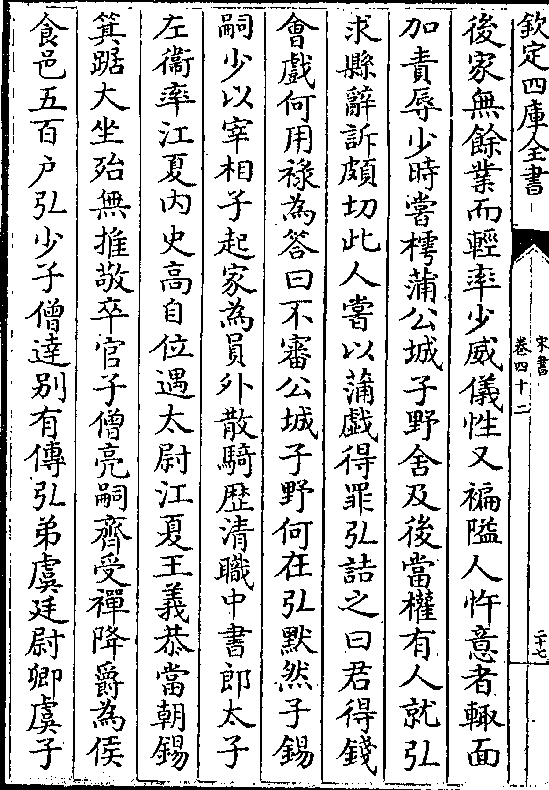 欽定四庫全書
宋書
卷四十二
二十七
後家無餘業而輕率少威儀性又褊隘人忤意者輒面
加責辱少時嘗樗蒲公城子野舍及後當權有人就弘
求縣辭訴頗切此人嘗以蒲戲得罪弘詰之曰君得錢
會戲何用祿為答曰不審公城子野何在弘默然子錫
嗣少以宰相子起家為員外散騎歷清職中書郎太子
左衞率江夏内史高自位遇太尉江夏王義恭當朝錫
箕踞大坐殆無推敬卒官子僧亮嗣齊受禪降爵為侯
食邑五百户弘少子僧達别有傳弘弟虞廷尉卿虞子